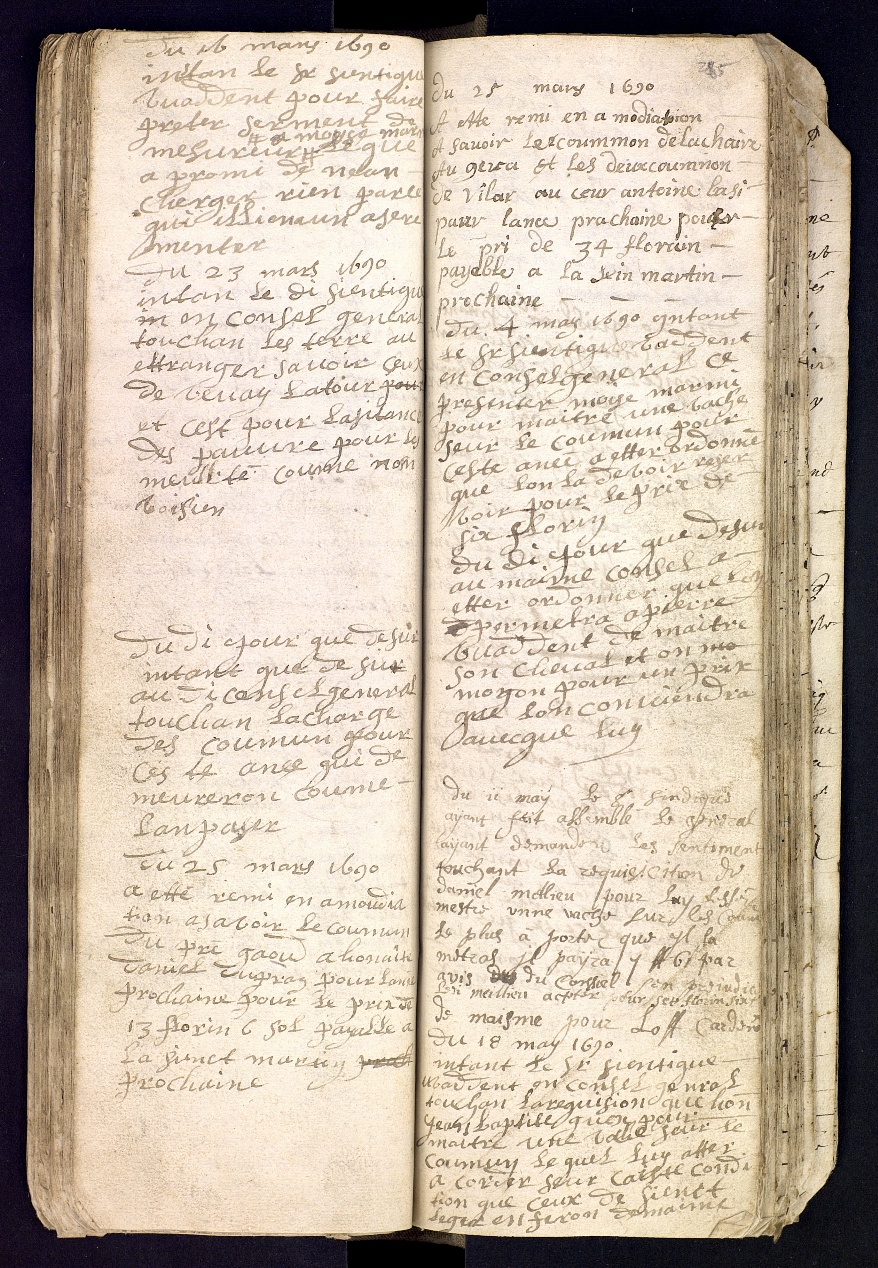 du 16 mars 1690
intan le Sr sientique
buaddent pour faire
preter serment de
# a moyse marin
mesureur # leque
a promi de nean
cherger rien parce
qui illienun a sere
menter
du 23 mars 1690
intan le di sientique
in en Consel general
touchan les terre au
ettranger savoir ceux
de vevay Latour pour
et cest pour lasitance
des pauvre pour les
meulite coume non
boisien
du di jour que desur
intant que de sur
au di consel general
touchan lacharge
des coumun pour
ces te anee qui de
meureron coume
lan pase
du 25 mars 1690
a ette remi en amoudia
tion asavoir le coumun
du pre gaoud a honaite
daniel dupraz pour lanee
prochaine pour le prix de
13 florin 6 sol payable a
la sienct martin
prochaine
du 25 mars 1690
A ette remi en a modiation
A savoir les coummon de la chaire
Au gerca et les deux coummon
de vilar au ceur antoine lasi
paur lance prachaine pour
le pri de 34 florain
payeble a la sein martin
prochaine
du 4 may 1690 gntant
le Sr sientique buaddent
en consel general ce
presenter moise marmi
pour maitre une vache
seur le coumun pour
ceste anee a etter ordonne
que lon la devoir reser
voir pour le prix de
six florin
du di jour que desur
au maime consel a
etter ordonner que lon
permetra a pierre
buaddent de maitre
son cheval et on mo
moyon pour un prix
que lon conviendra
avecque luy
du 11 may le Sr sindique
ayant fait assemble le general
layant demander les sentiment
touchant la requisition de
daniel mathieu pour luy
mestre unne vache sur les
le plus à porter que yl la
metras jl payra y ff 6 par
avis du Conseil
de maisme pour
du 18 may 1690
intant le Sr sientique
buaddent en Consel genral
touchan la requision que lion
jean baptiste pour
maitre une vache seur le
coumun le quel luy atter
a corder seur caiste condi
tion que ceux de sienct
leger en feron demaime